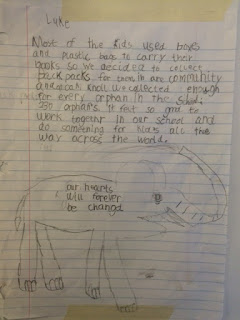 Luke
Most of the kids used boxes
and plastic bags to carry their
books so we decided to collect
back packs for them. In are community
and acah knoll we collected enough
for every orphan in the school.
250 orphans. It felt so good to
work together in our school and
do something for kids all the
way across the world.
our hearts
will forever
be changd